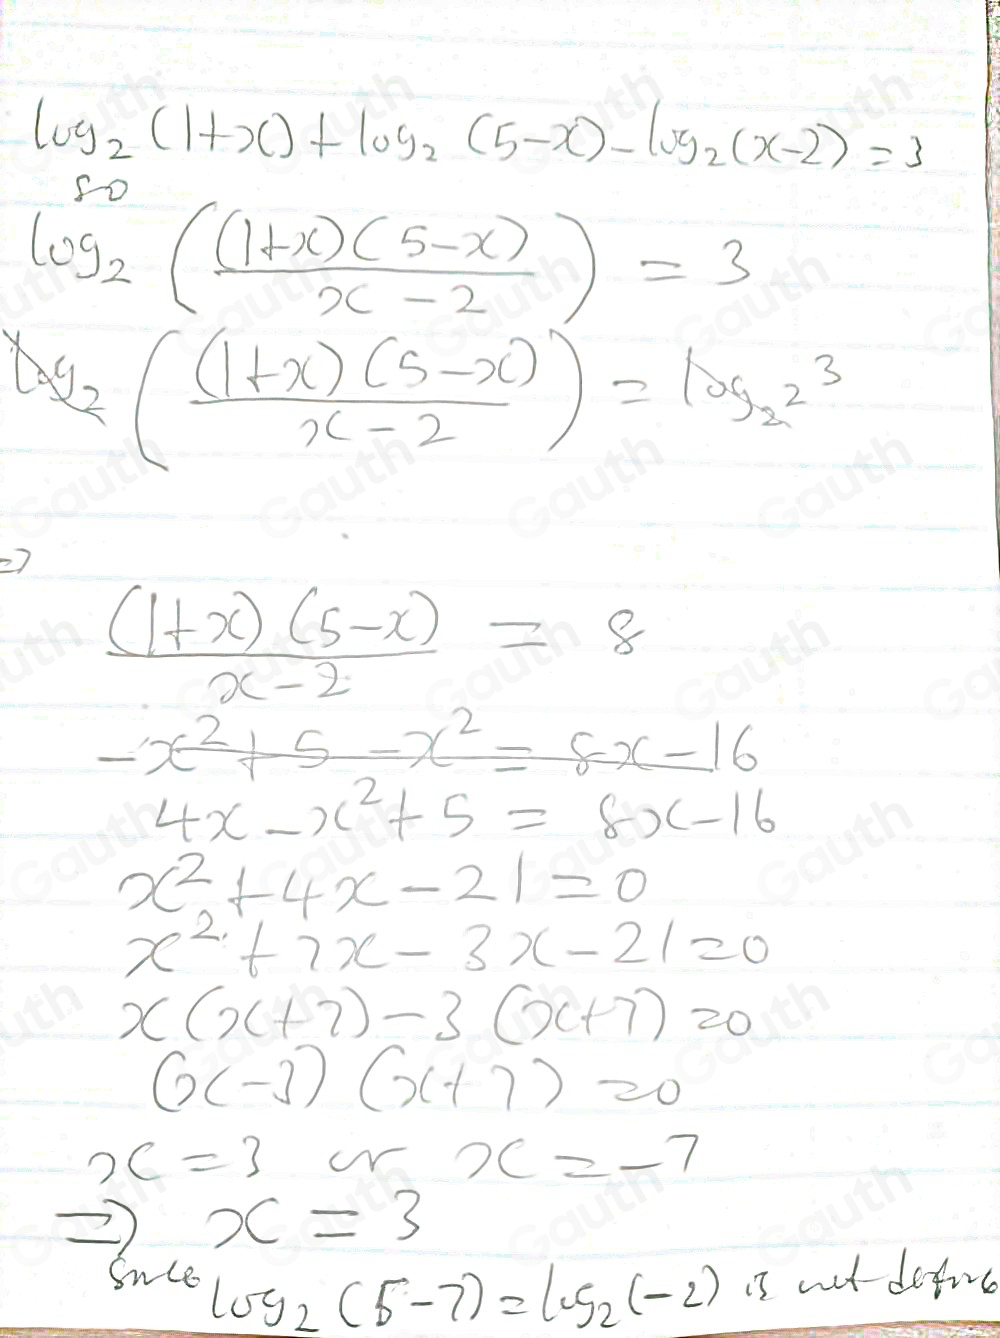 log₂ (1+x) + log₂ (5-x) - log₂(x-2) = 3
so
log₂ ( (1+x)(5-x) / x-2 ) = 3
log₂ ( (1+x)(5-x) / x-2 ) = log₂ 2³
=>
(1+x)(5-x) / x-2 = 8
-x² + 5 - x² = 8x - 16
4x - x² + 5 = 8x - 16
x² + 4x - 21 = 0
x² + 7x - 3x - 21 = 0
x(x+7) - 3(x+7) = 0
(x-3)(x+7) = 0
x = 3 or x = -7
=> x = 3
since log₂ (5-7) = log₂(-2) is not define